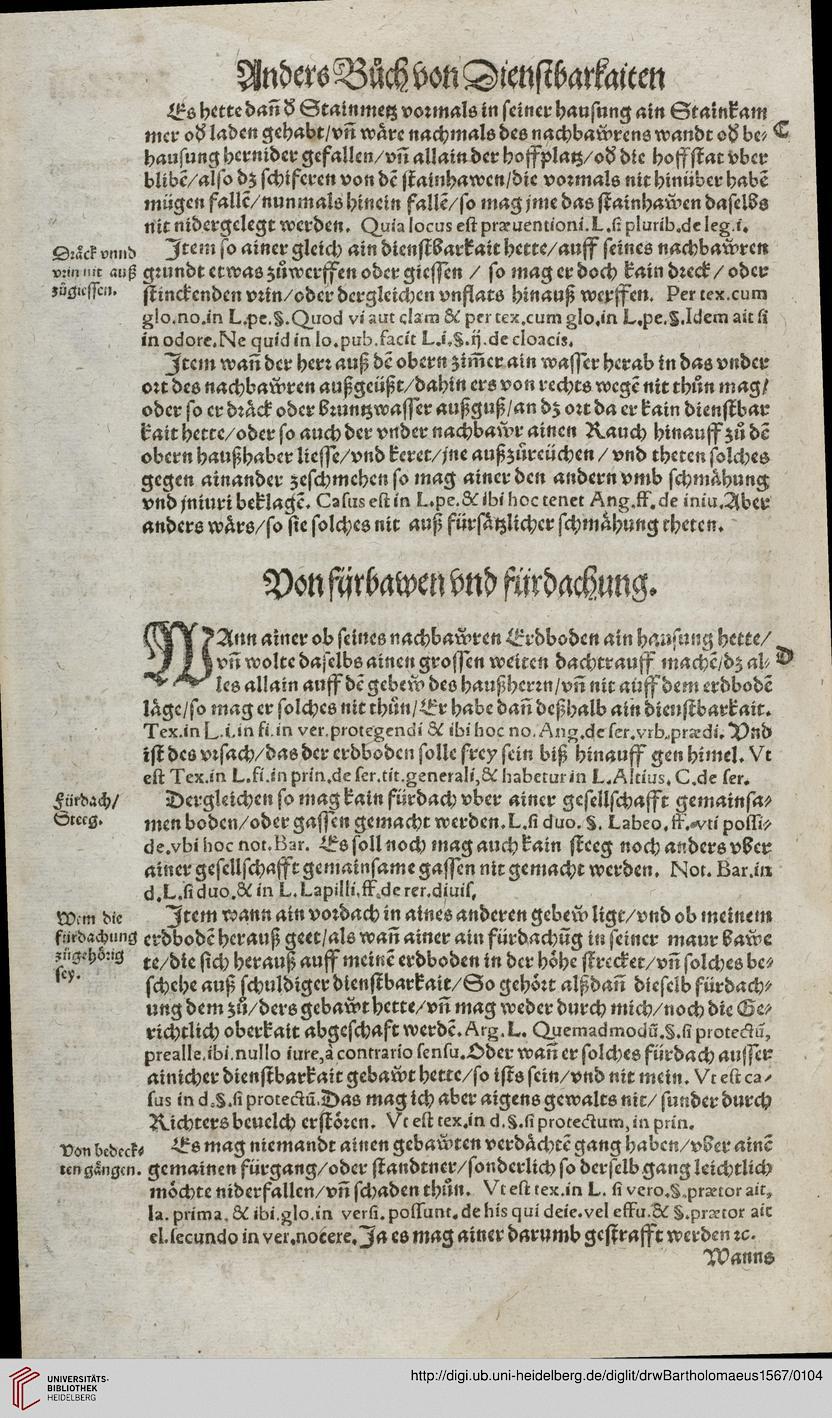 Anders Bůch von Dienstbarkaiten
Es hette dañ d̓ Stainmetz vormals in seiner hausung ain Stainkam
mer od̓ laden gehabt/vñ wåre nachmals des nachbaẘrens wandt od̓ be⸗ C
hausung hernider gefallen/vñ allain der hoffplatz/od̓ die hoffstat vber
blibẽ/also dz schiferen von dẽ stainhawen/die vormals nit hinüber habẽ
mügen fallẽ/nunmals hinein fallẽ/so mag jme das stainhawen daselbs
nit nidergelegt werden. Quia locus est præuentioni. L. si plurib. de leg. i.
Dråck vnnd
vrin nit auß
zůgiessen.
Item so ainer gleich ain dienstbarkait hette/auff seines nachbaẘren
grundt etwas zůwerffen oder giessen / so mag er doch kain dreck / oder
stinckenden vrin/oder dergleichen vnflats hinauß werffen. Per tex. cum
glo. no. in L. pe. §. Quod vi aut clam & per tex. cum glo. in L. pe. §. Idem ait si
in odore. Ne quid in lo. pub. facit L. i. §. ij. de cloacis.
Item wañ der herr auß dẽ obern zim̃er ain wasser herab in das vnder
ort des nachbaẘren außgeüßt/dahin ers von rechts wegẽ nit thůn mag/
oder so er dråck oder bruntzwasser außguß/an dz ort da er kain dienstbar
kait hette/oder so auch der vnder nachbaẘr ainen Rauch hinauff zů dẽ
obern haußhaber liesse/vnd keret/jne außzůreüchen / vnd theten solches
gegen ainander zeschmehen so mag ainer den andern vmb schmåhung
vnd jniuri beklagẽ. Casus est in L. pe. & ibi hoc tenet Ang. ff. de iniu. Aber
anders wårs/so sie solches nit auß fürsåtzlicher schmåhung theten.
Von fürbawen vnd fürdachung.
WAnn ainer ob seines nachbaẘren Erdboden ain hausung hette/
vñ wolte daselbs ainen grossen weiten dachtrauff machẽ/dz al⸗ D
les allain auff dẽ gebeẘ des haußherrn/vñ nit auff dem erdbodẽ
låge/so mag er solches nit thůn/Er habe dañ deßhalb ain dienstbarkait.
Tex. in L. i. in fi. in ver. protegendi & ibi hoc no. Ang. de ser. vrb. prædi. Vnd
ist des vrsach/das der erdboden solle frey sein biß hinauff gen himel. Vt
est Tex. in L. fi. in prin. de ser. tit. generali, & habetur in L. Altius, C. de ser.
Fürdach/
Steeg.
Dergleichen so mag kain fürdach vber ainer gesellschafft gemainsa⸗
men boden/oder gassen gemacht werden. L. si duo. §. Labeo. ff. vti possi⸗
de. vbi hoc not. Bar. Es soll noch mag auch kain steeg noch anders vber
ainer gesellschafft gemainsame gassen nit gemacht werden. Not. Bar. in
d. L. si duo. & in L. Lapilli. ff. de rer. diuis.
Wem die
fürdachung
zůgehörig
sey.
Item wann ain vordach in aines anderen gebeẘ ligt/vnd ob meinem
erdbodẽ herauß geet/als wañ ainer ain fürdachũg in seiner maur bawe
te/die sich herauß auff meinẽ erdboden in der höhe strecket/vñ solches be⸗
schehe auß schuldiger dienstbarkait/So gehört alßdañ dieselb fürdach⸗
ung dem zů/ders gebaẘt hette/vñ mag weder durch mich/noch die Ge⸗
richtlich oberkait abgeschaft werdẽ. Arg. L. Quemadmodũ. §. si protectũ,
prealle. ibi. nullo iure, à contrario sensu. Oder wañ er solches fürdach ausser
ainicher dienstbarkait gebaẘt hette/so ists sein/vnd nit mein. Vt est ca⸗
sus in d. §. si protectũ. Das mag ich aber aigens gewalts nit/ sunder durch
Richters beuelch erstören. Vt est tex. in d. §. si protectum, in prin.
Von bedeck⸗
ten gången.
Es mag niemandt ainen gebaẘten verdåchtẽ gang haben/vber ainẽ
gemainen fürgang/oder standtner/sonderlich so derselb gang leichtlich
möchte niderfallen/vñ schaden thůn. Vt est tex. in L. si vero. §. prætor ait,
la. prima. & ibi. glo. in versi. possunt. de his qui deie. vel effu. & §. prætor ait
el. secundo in ver. nocere. Ja es mag ainer darumb gestrafft werden ꝛc.
Wanns
UNIVERSITÄTS-
BIBLIOTHEK
HEIDELBERG
http://digi.ub.uni-heidelberg.de/diglit/drwBartholomaeus1567/0104